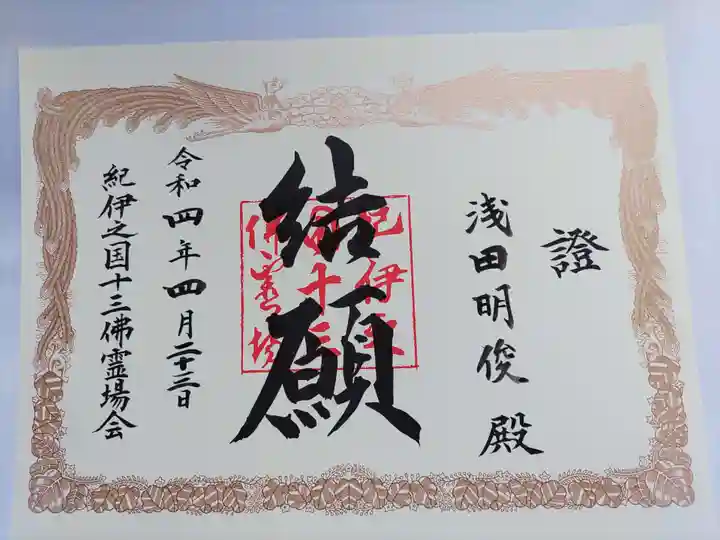 證
浅田明俊 殿
結願
紀伊之
国十三
佛霊場
令和四年四月二十三日
紀伊之国十三佛霊場会